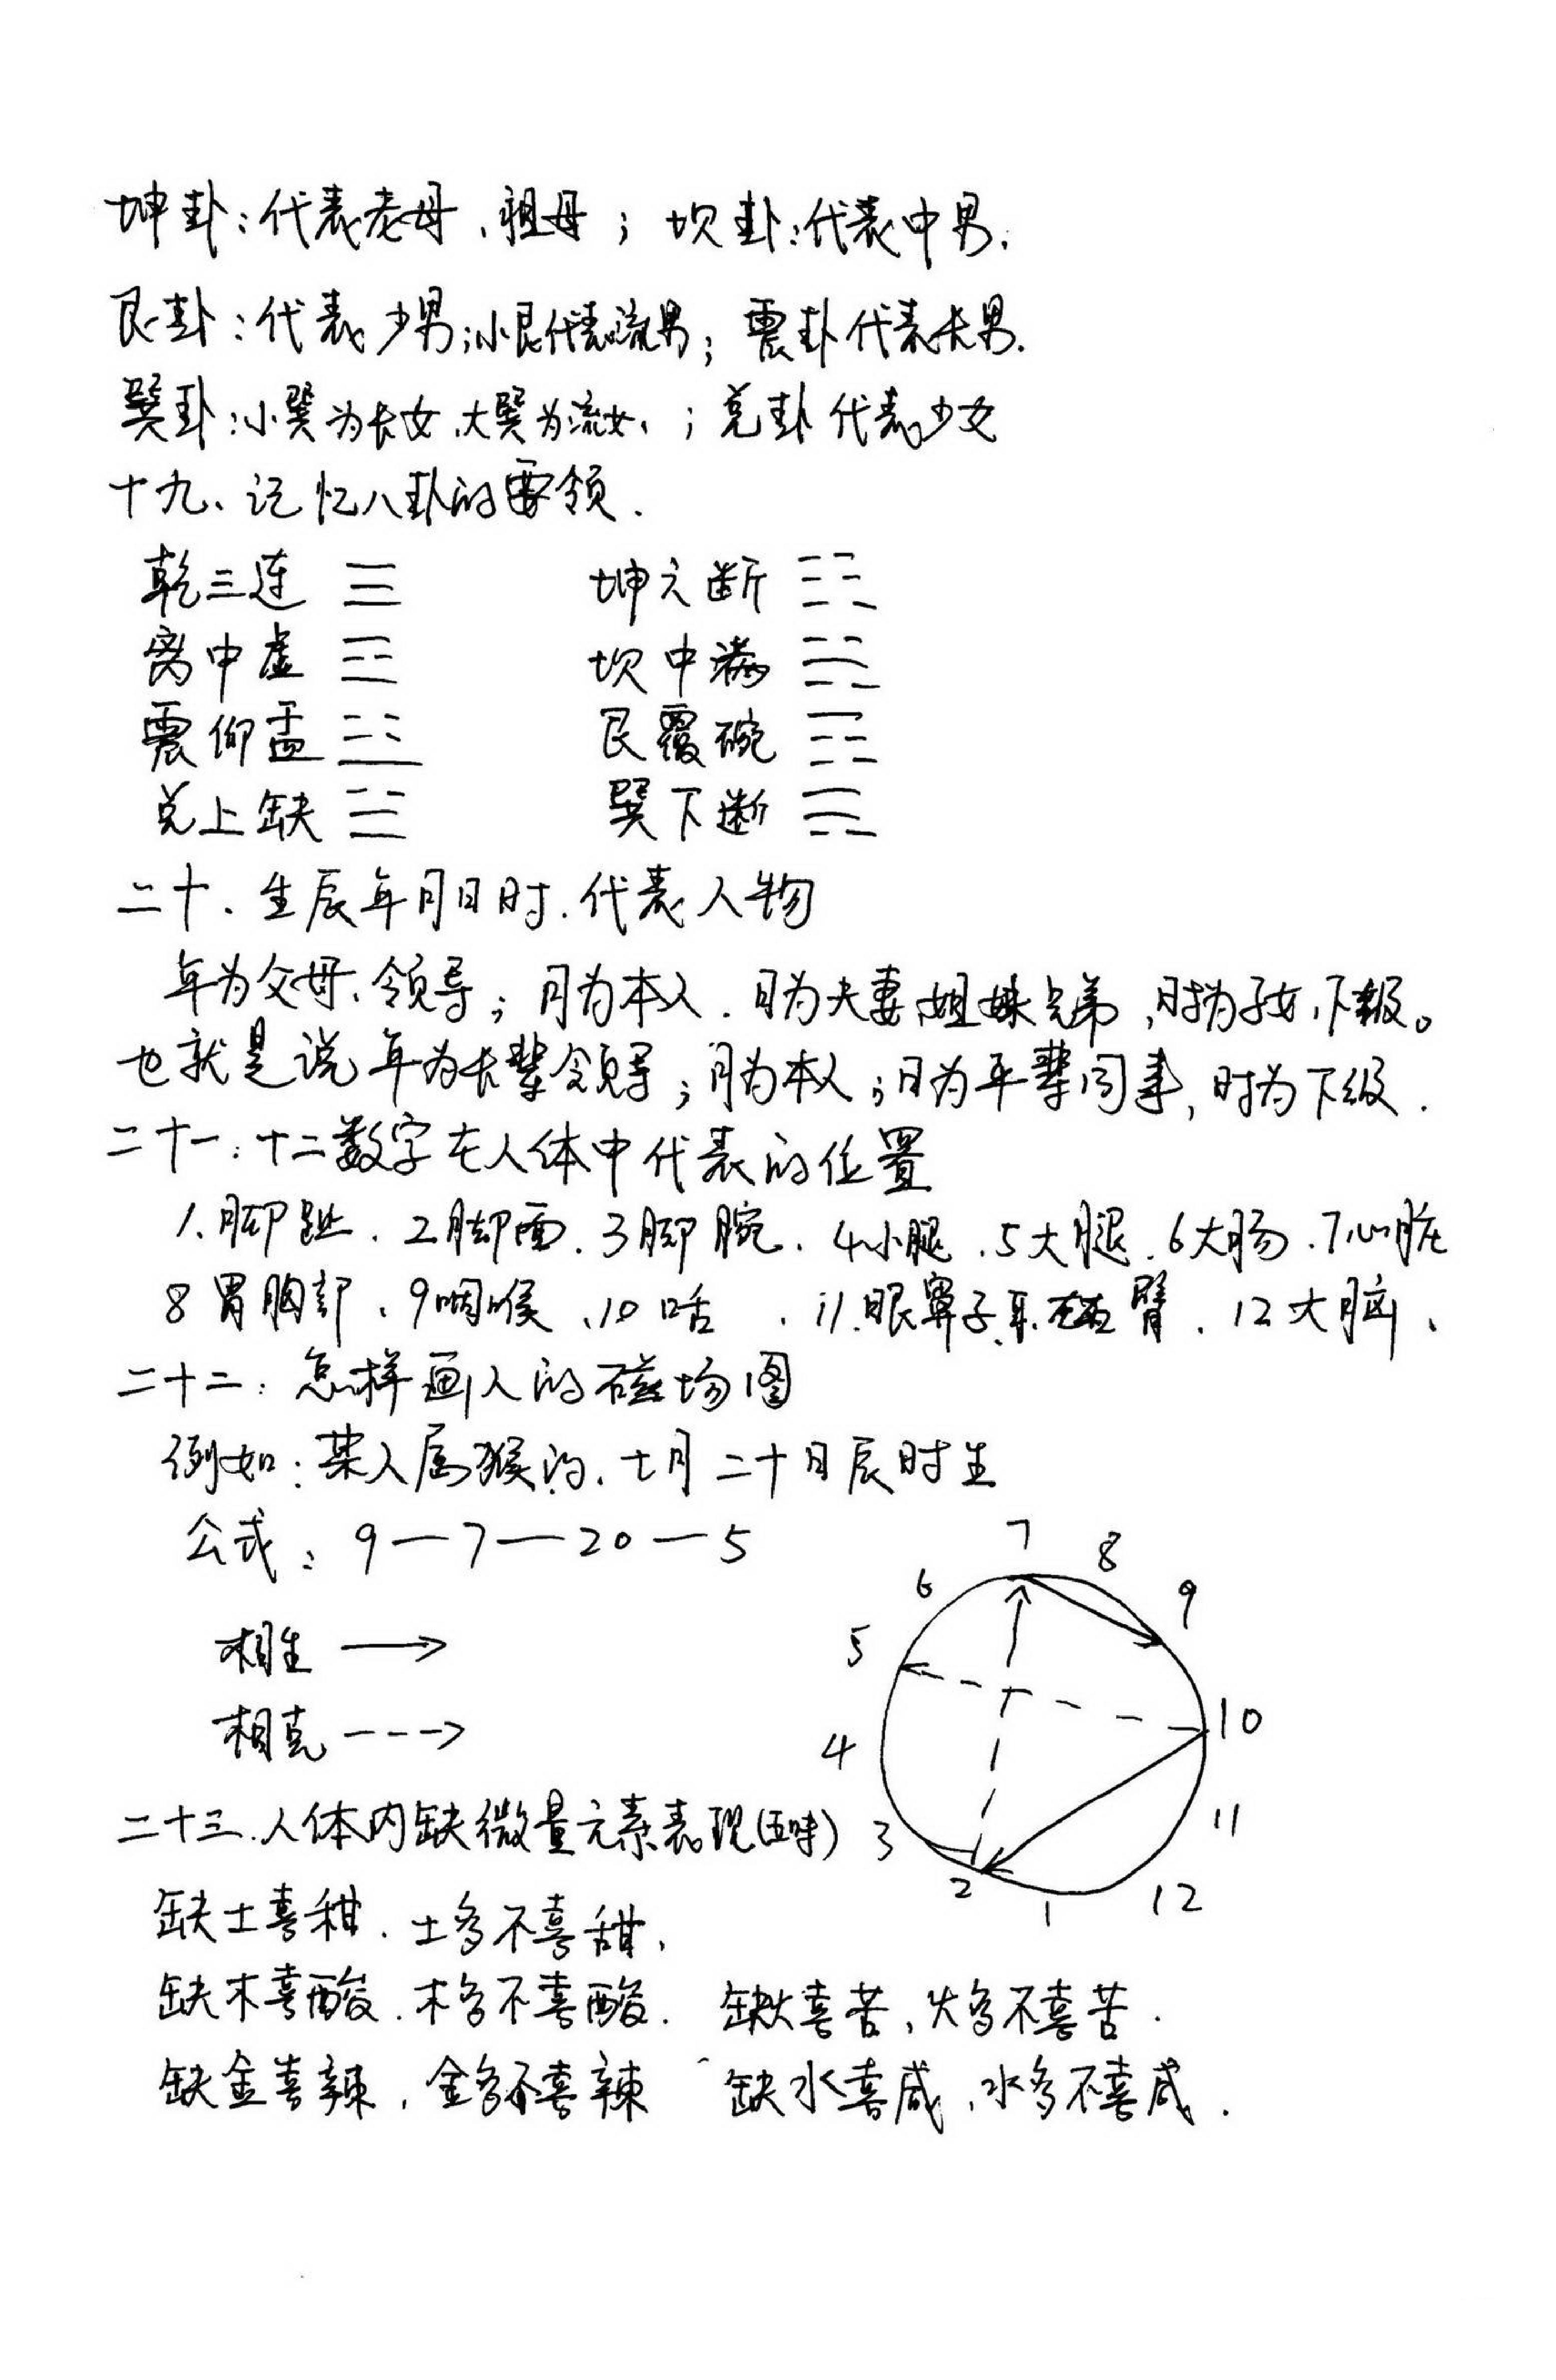 坤卦:代表老母、祖母;坎卦:代表中男.
艮卦:代表少男;小艮代表流男;震卦代表长男.
巽卦:小巽为长女、大巽为流女、;兑卦代表少女
十九、记忆八卦的要领.
乾三连 ☰ 坤六断 ☷
离中虚 ☲ 坎中满 ☵
震仰盂 ☳ 艮覆碗 ☶
兑上缺 ☱ 巽下断 ☴
二十、生辰年月日时.代表人物
年为父母、领导;月为本人.日为夫妻、姐妹兄弟,时为子女,下级。
也就是说年为长辈领导;月为本人;日为平辈同事,时为下级.
二十一:十二数字在人体中代表的位置
1.脚趾.2脚面.3脚腕.4小腿.5大腿.6大肠.7心脏
8胃胸部、9咽喉、10舌.11.眼鼻子.耳.左右臂.12大脑、
二十二:怎样画人的磁场图
例如:某人属猴的、七月二十日辰时生
公式:9—7—20—5
相生 →
相克 --->
7
8
9
10
11
12
1
2
3
4
5
6
二十三.人体内缺微量元素表现(五味)
缺土喜甜.土多不喜甜,
缺木喜酸.木多不喜酸. 缺火喜苦,火多不喜苦.
缺金喜辣,金多不喜辣 缺水喜咸,水多不喜咸.